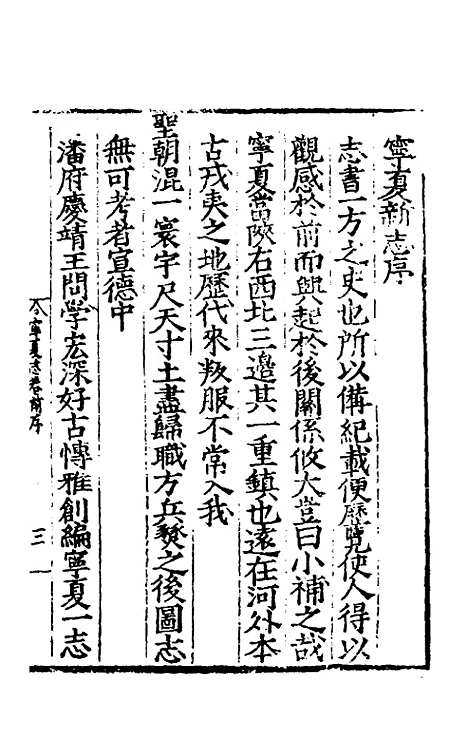 寧夏新志序
志書一方之史也所以備紀載便歷覽使人得以
觀感於前而興起於後關係攸大豈曰小補之哉
寧夏當陝右西北三邊其一重鎮也遠在河外本
古戎夷之地歷代來叛服不常入我
聖朝混一寰宇尺天寸土盡歸職方兵燹之後圖志
無可考者宣德中
潘府慶靖王問學宏深好古慱雅創編寧夏一志
寧夏志卷前序
三